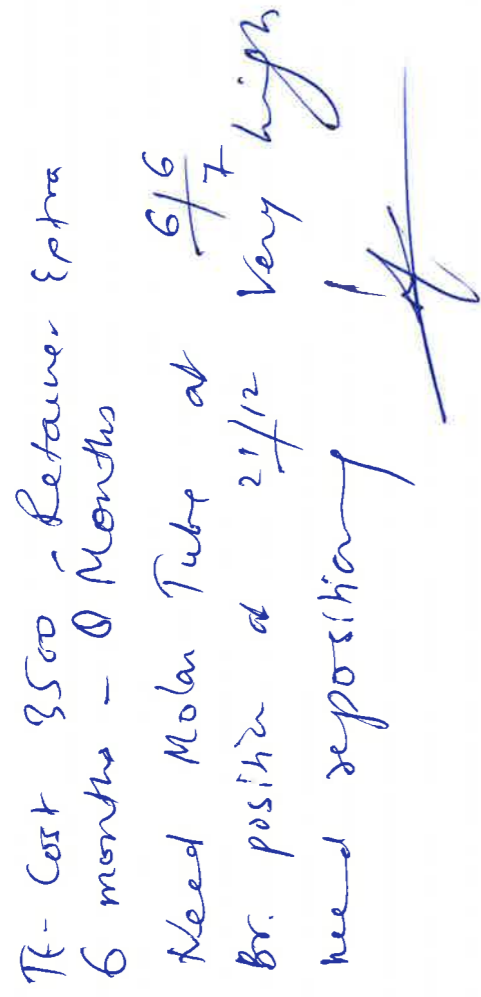 Tt- Cost 3500 - Retainer Extra
6 months - 8 Months
Need Molar Tube at 6/6 7
Br. position of 21/12 Very high
need reposition